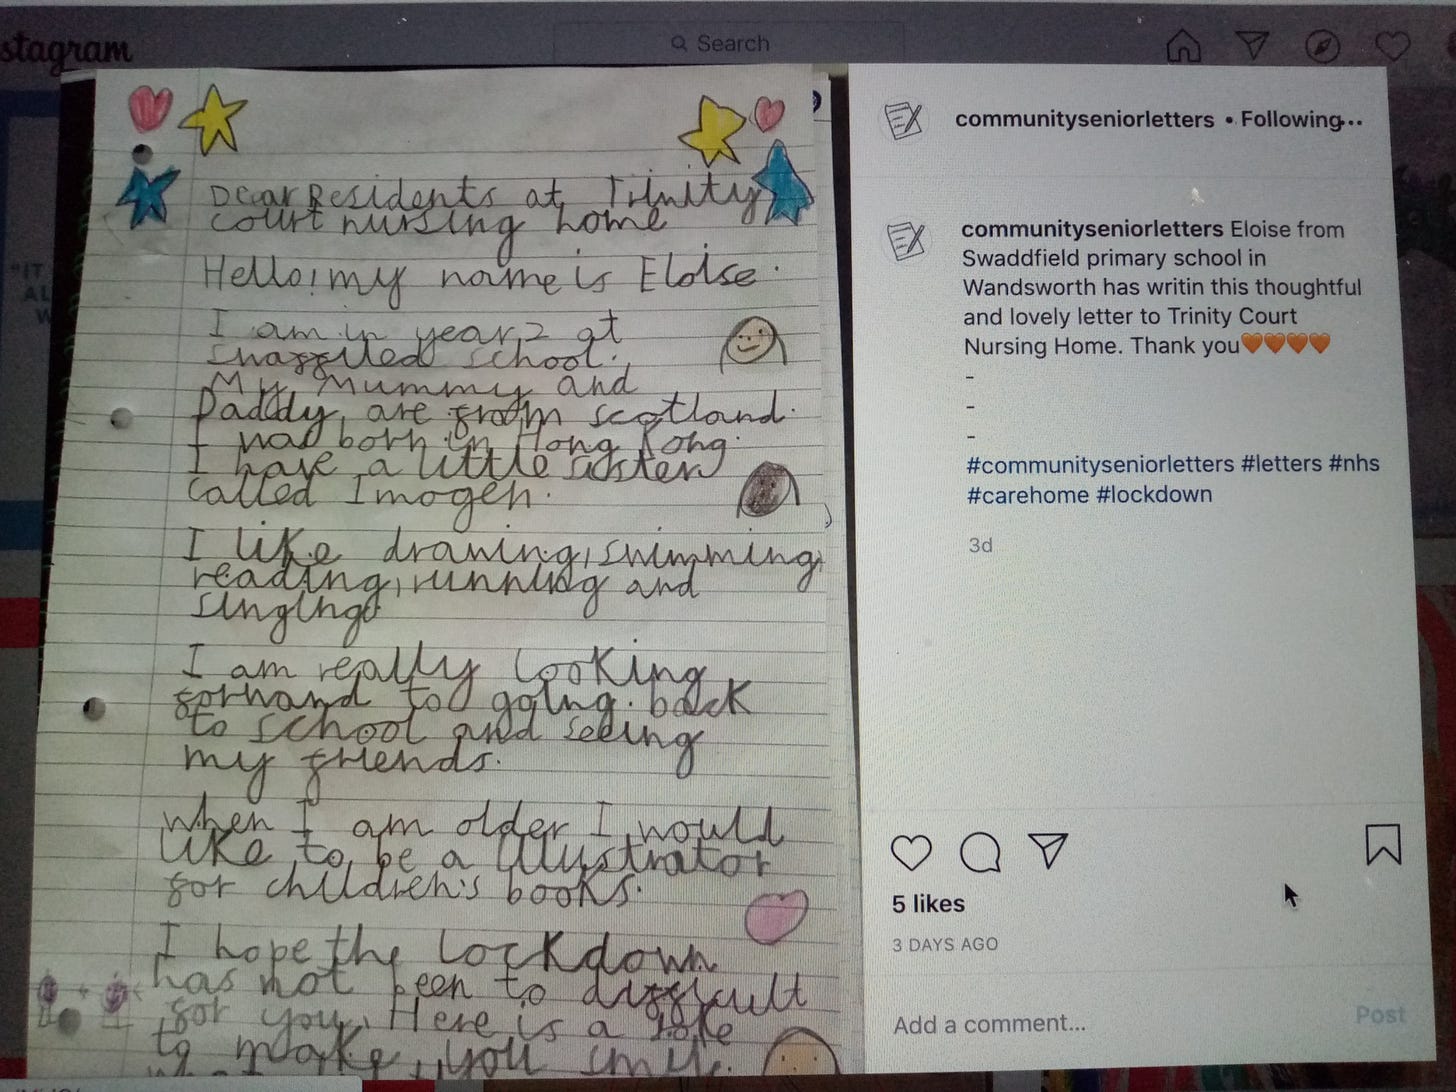 stagram
Search
Dear Residents at Trinity
court nursing home
Hello! my name is Eloise.
I am in year 2 at
school.
My Mummy and
Daddy are from scotland.
I was born in Hong Kong.
I have a little sister
called Imogen.
I like drawing, swimming,
reading, running and
singing
I am really looking
forward to going back
to school and seeing
my friends.
when I am older I would
like to be a illustrator
for children's books.
I hope the lockdown
has not been to difficult
for you. Here is a joke
to make you smile.
communityseniorletters • Following...
communityseniorletters Eloise from
Swaddfield primary school in
Wandsworth has writin this thoughtful
and lovely letter to Trinity Court
Nursing Home. Thank you🧡🧡🧡🧡
-
-
-
#communityseniorletters #letters #nhs
#carehome #lockdown
3d
5 likes
3 DAYS AGO
Add a comment...
Post